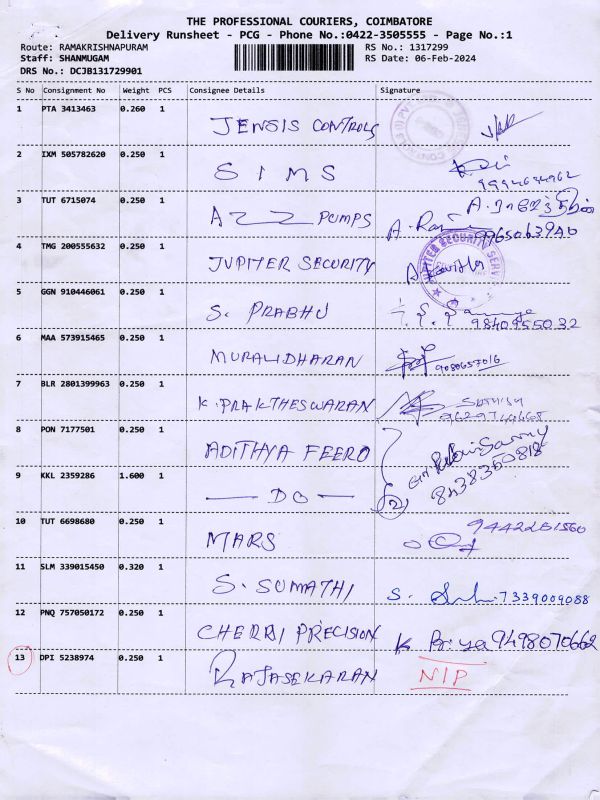 THE PROFESSIONAL COURIERS, COIMBATORE
Delivery Runsheet - PCG - Phone No.:0422-3505555 - Page No.:1
Route: RAMAKRISHNAPURAM RS No.: 1317299
Staff: SHANMUGAM RS Date: 06-Feb-2024
DRS No.: DCJB131729901
S No Consignment No Weight PCS Consignee Details Signature
1 PTA 3413463 0.260 1 JENSIS CONTROLS
2 IXM 505782620 0.250 1 SIMS
3 TUT 6715074 0.250 1 AZZ PUMPS A.
4 TMG 200555632 0.250 1 JUPITER SECURITY
5 GGN 910446061 0.250 1 S. PRABHU
9840955032
6 MAA 573915465 0.250 1 MURALIDHARAN 9080657016
7 BLR 2801399963 0.250 1 K. PRAKTHESWARAN
8 PON 7177501 0.250 1 ADITHYA FEERO
8438350818
9 KKL 2359286 1.600 1 — DO — 2
10 TUT 6698680 0.250 1 MARS
11 SLM 339015450 0.320 1 S. SUMATHI S. 7339009088
12 PNQ 757050172 0.250 1 CHERRI PRECISION K Priya 9498070662
13 DPI 5238974 0.250 1 RAJASEKARAN NIP